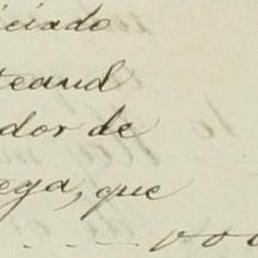 iciado
teaud
dor de
ega, que